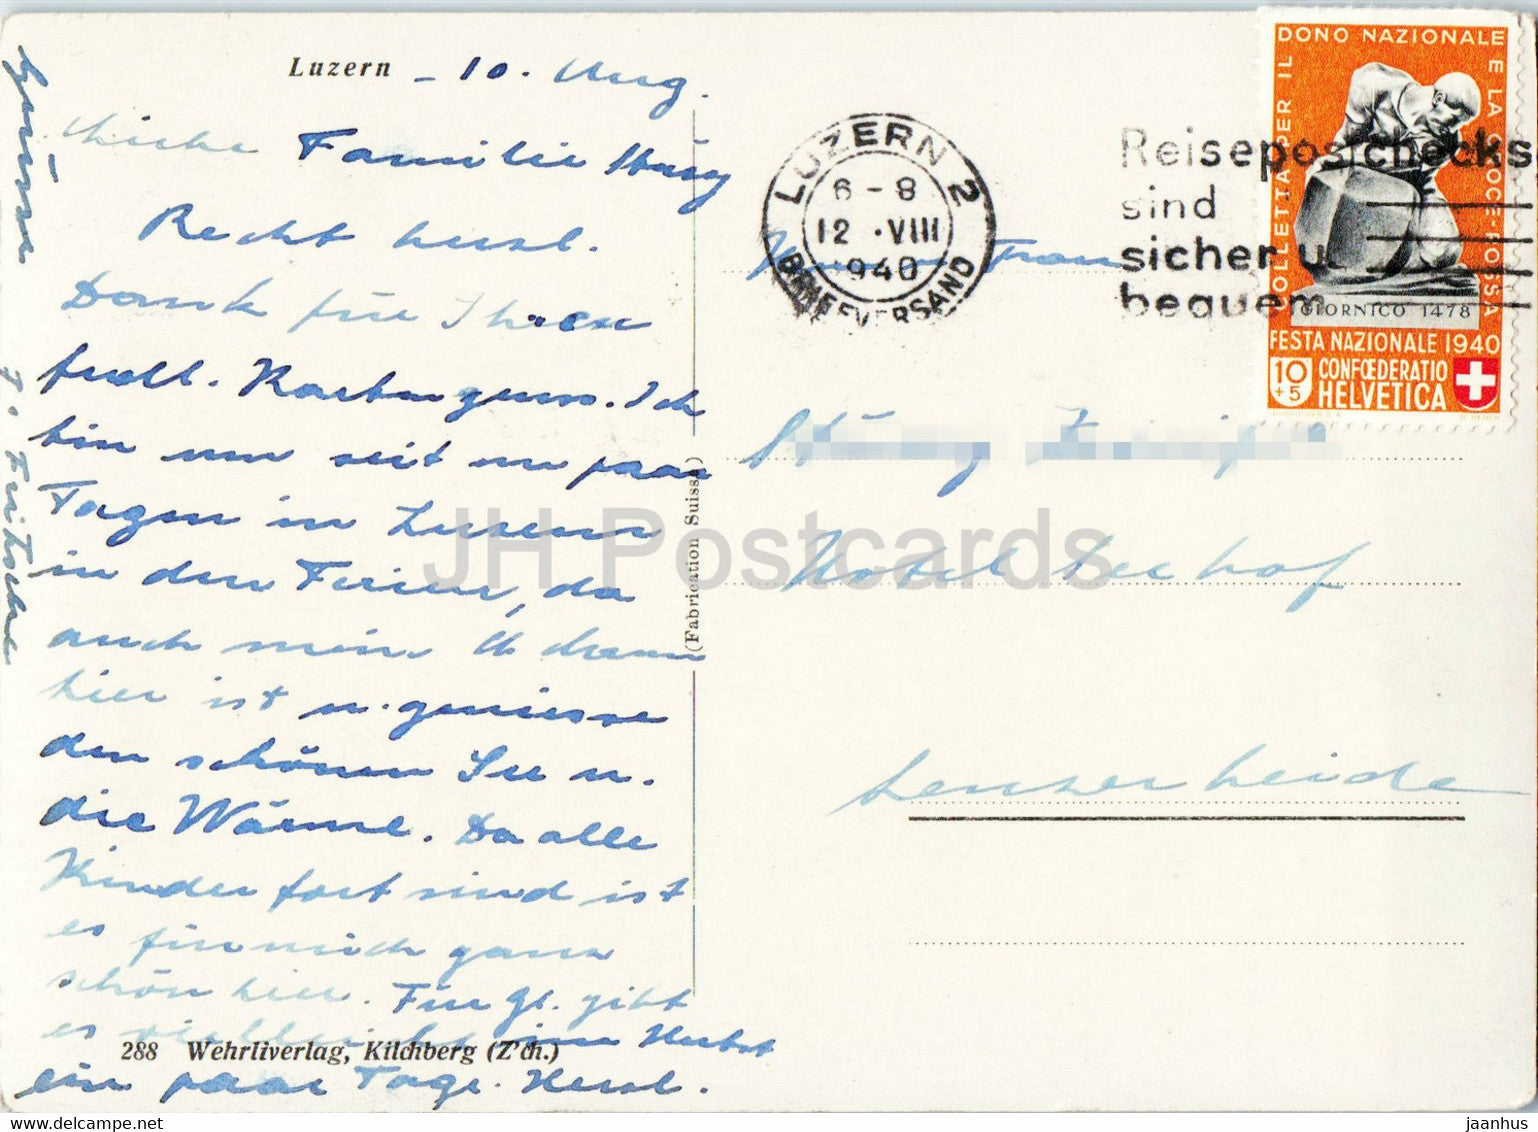 Luzern - 10. Aug.
Liebe Familie
Recht herzl.
Dank für Ihren
frdl. Kartengruss. Ich
bin nun seit en paar
Tagen in Luzern
in den Ferien, da
auch mein
hier ist u. geniesse
den schönen See u.
die Wärme. Da alle
Kinder fort sind ist
es für mich ganz
schön hier. Für Gl. gibt
es vielleicht im Herbst
ein paar Tage. Herzl.
Grüsse
288 Wehrliverlag, Kilchberg (Z'ch.)
(Fabrication Suisse)
LUZERN 2
6-8
12.VIII
1940
BRIEFVERSAND
Reisepostchecks
sind
sicher u.
bequem
COLLETTA PER IL DONO NAZIONALE E LA CROCE-ROSSA
GIORNICO 1478
FESTA NAZIONALE 1940
10+5 CONFŒDERATIO
HELVETICA
Frau
Hotel Seehof
Lenzerheide
JH Postcards
jaanhus